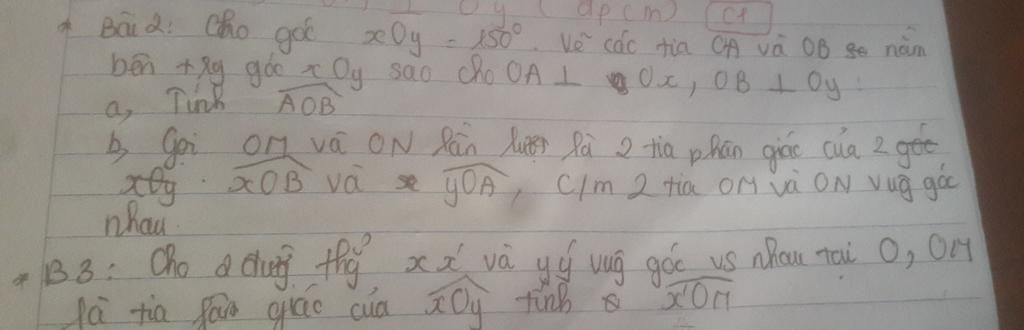 ⊥ Oy (đpcm) C1
* Bài 2: Cho góc xOy = 150°. Vẽ các tia OA và OB nằm
bên trg góc xOy sao cho OA ⊥ Ox, OB ⊥ Oy.
a, Tính AOB
b, Gọi OM và ON lần lượt là 2 tia phân giác của 2 góc
xOB và yOA, C/m 2 tia OM và ON vug góc
nhau.
* B3: Cho 2 đườg thg xx' và yy' vug góc vs nhau tại O, OM
là tia phân giác của xOy tính x'OM